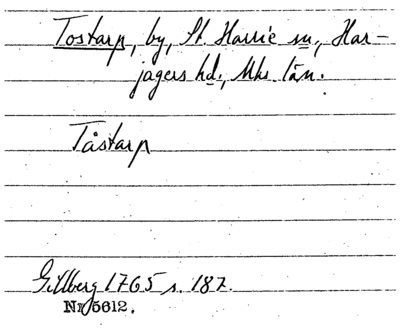 Tostarp, by, St. Harrie sn, Har-
jagers hd., Mhs. län.
Tåstarp
Gillberg 1765 s. 187.
Nr 5612.